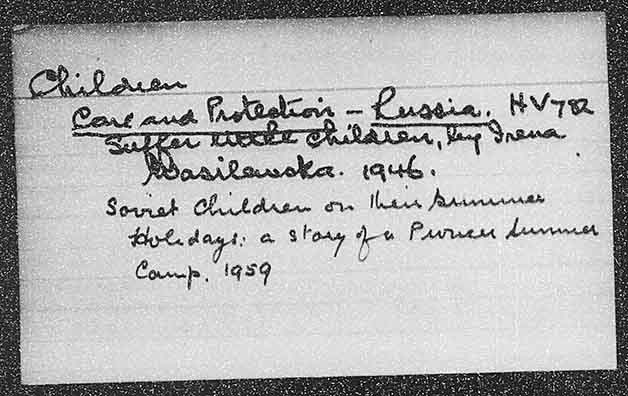 Children
Care and Protection - Russia. HV782
Suffer little children, by Irena
Wasilewska. 1946.
Soviet Children on their Summer
Holidays: a story of a Pioneer Summer
Camp. 1959